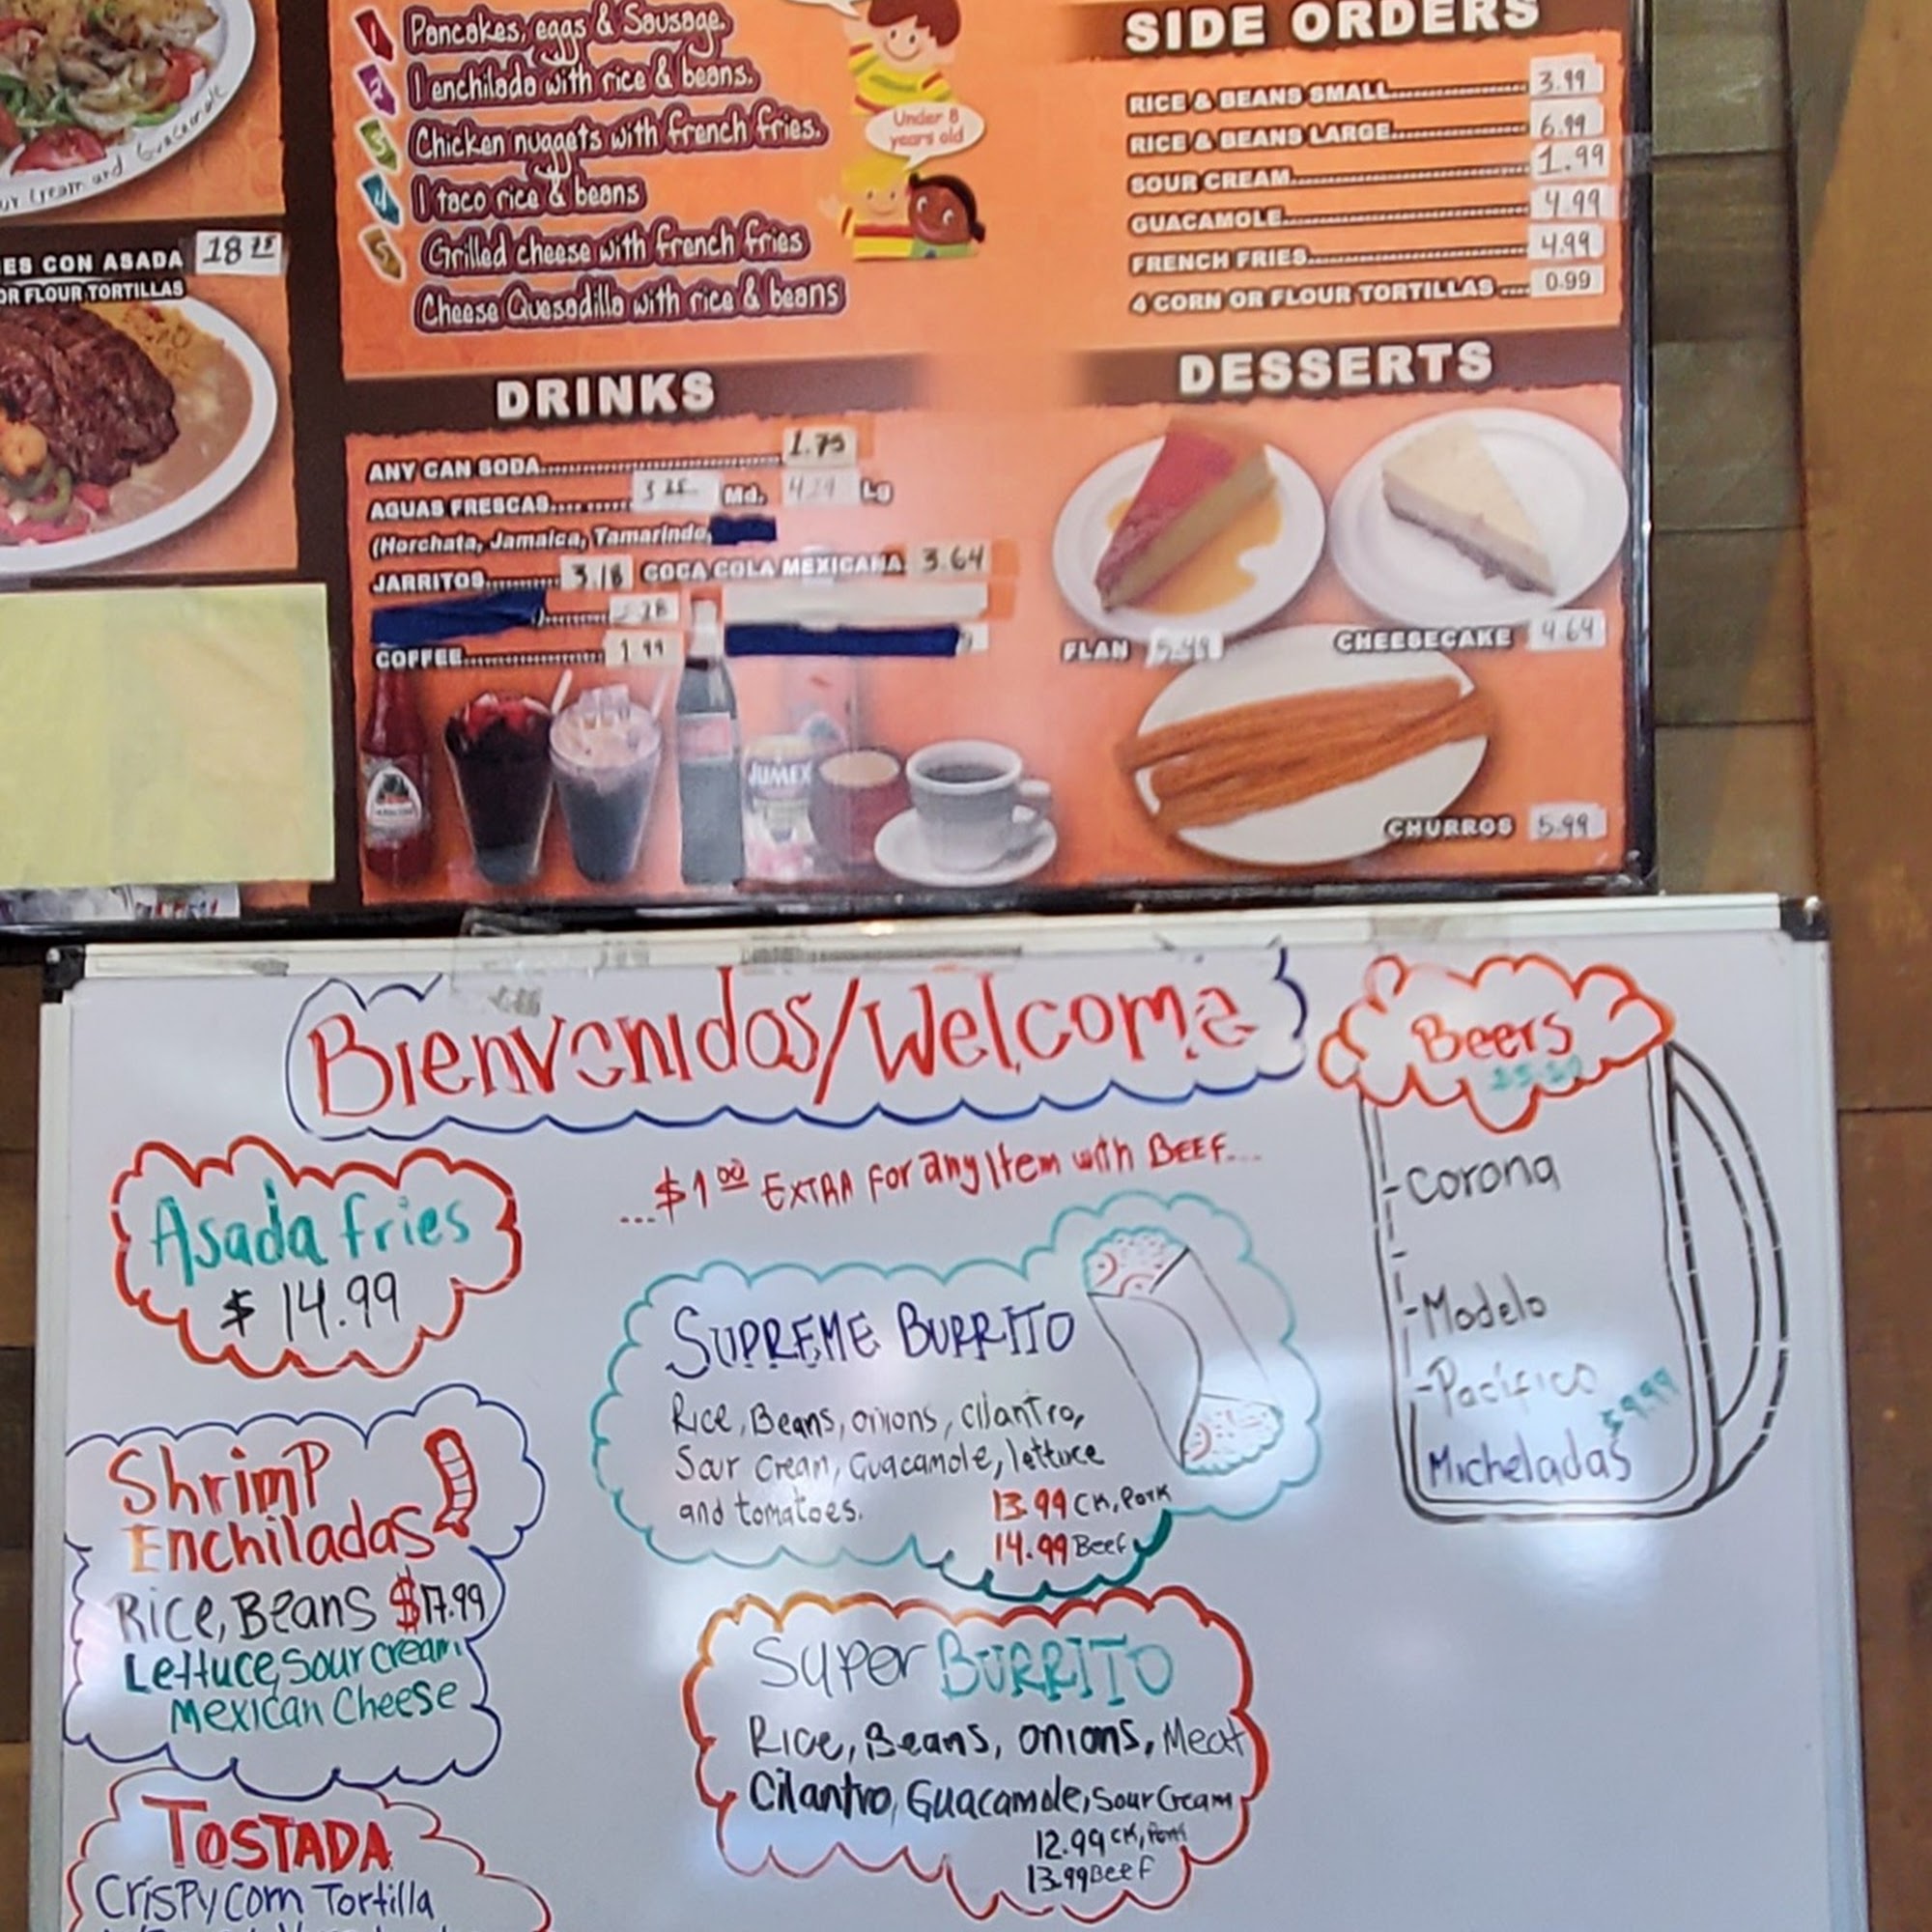 our Cream and Guacamole
ES CON ASADA 18
OR FLOUR TORTILLAS
1 Pancakes, eggs & Sausage.
2 1 enchilada with rice & beans.
3 Chicken nuggets with french fries.
4 1 taco rice & beans
5 Grilled cheese with french fries
Cheese Quesadilla with rice & beans
Under 8
years old
SIDE ORDERS
RICE & BEANS SMALL 3.99
RICE & BEANS LARGE 6.99
SOUR CREAM 1.99
GUACAMOLE 4.99
FRENCH FRIES 4.99
4 CORN OR FLOUR TORTILLAS 0.99
DRINKS
ANY CAN SODA 1.75
AGUAS FRESCAS Md. Lg
(Horchata, Jamaica, Tamarindo,
JARRITOS 3.18 COCA COLA MEXICANA 3.64
COFFEE 1.99
JUMEX
DESSERTS
FLAN 5.49 CHEESECAKE 4.64
CHURROS 5.99
Bienvenidos/Welcome
...$1.00 EXTRA For any Item with BEEF...
Asada fries
$14.99
Shrimp
Enchiladas
Rice, Beans $17.99
Lettuce, Sour cream
Mexican Cheese
TOSTADA
Crispy Corn Tortilla
SUPREME BURRITO
Rice, Beans, onions, cilantro,
Sour Cream, Guacamole, lettuce
and tomatoes. 13.99 CK, Pork
14.99 Beef
Super BURRITO
Rice, Beans, onions, Meat
Cilantro, Guacamole, Sour Cream
12.99 CK, Pork
13.99 Beef
Beers
-Corona
-
-Modelo
-Pacifico
$9.99
Micheladas